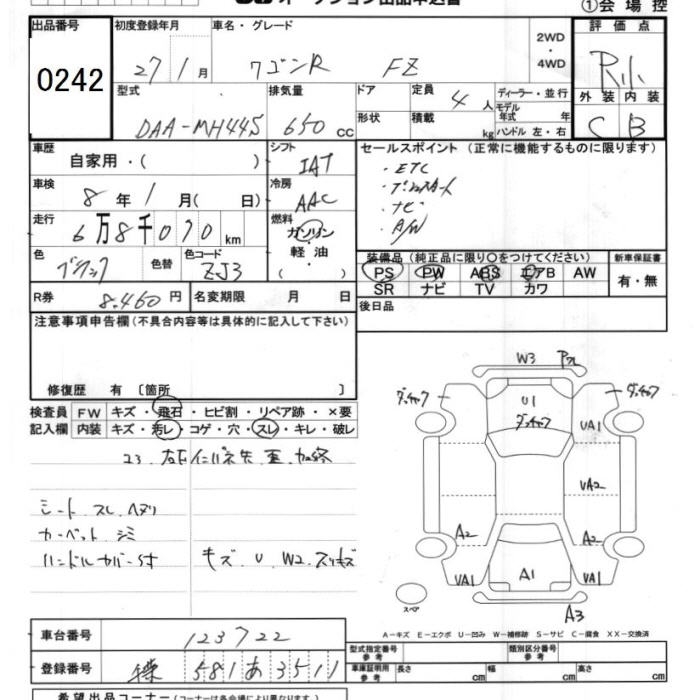 オークション出品申込書 ①会場控
出品番号 初度登録年月 車名・グレード 2WD・4WD 評価点
0242 27年1月 ワゴンR FZ
外装 内装
型式 排気量 ドア 定員 ディーラー・並行
DAA-MH44S 650cc 4人 モデル年式 年
形状 積載 kg ハンドル 左・右 C B
車歴 自家用・( ) シフト IAT セールスポイント (正常に機能するものに限ります)
車検 8年1月( 日) 冷房 AAC ・ETC
走行 6万8千070km 燃料 ガソリン・軽油・( ) ・ナビ
・A/W
色 ブラック 色替 色コード ZJ3
装備品(純正品に限り○をつけてください) 新車保証書
PS PW ABS エアB AW 有・無
SR ナビ TV カワ
R券 8,460円 名変期限 月 日
後日品
注意事項申告欄(不具合内容等は具体的に記入して下さい)
修復歴 有 〔箇所 〕
検査員 FW キズ・飛石・ヒビ割・リペア跡・×要
記入欄 内装 キズ・汚レ・コゲ・穴・スレ・キレ・破レ
シート スレ ヘタリ
カーペット シミ
ハンドルカバー付 キズ U W2 スリキズ
W3
U1
UA1
UA2
A2 A2
UA1 A1 UA1
スペア
A3
A-キズ E-エクボ U-凹み W-補修跡 S-サビ C-腐食 XX-交換済
車台番号 123722
登録番号 581 あ 3511
型式指定番号 参考 類別区分番号 参考
車庫証明用 参考 長さ cm 幅 cm 高さ cm
希望出品コーナー(コーナーは各会場により異なります)